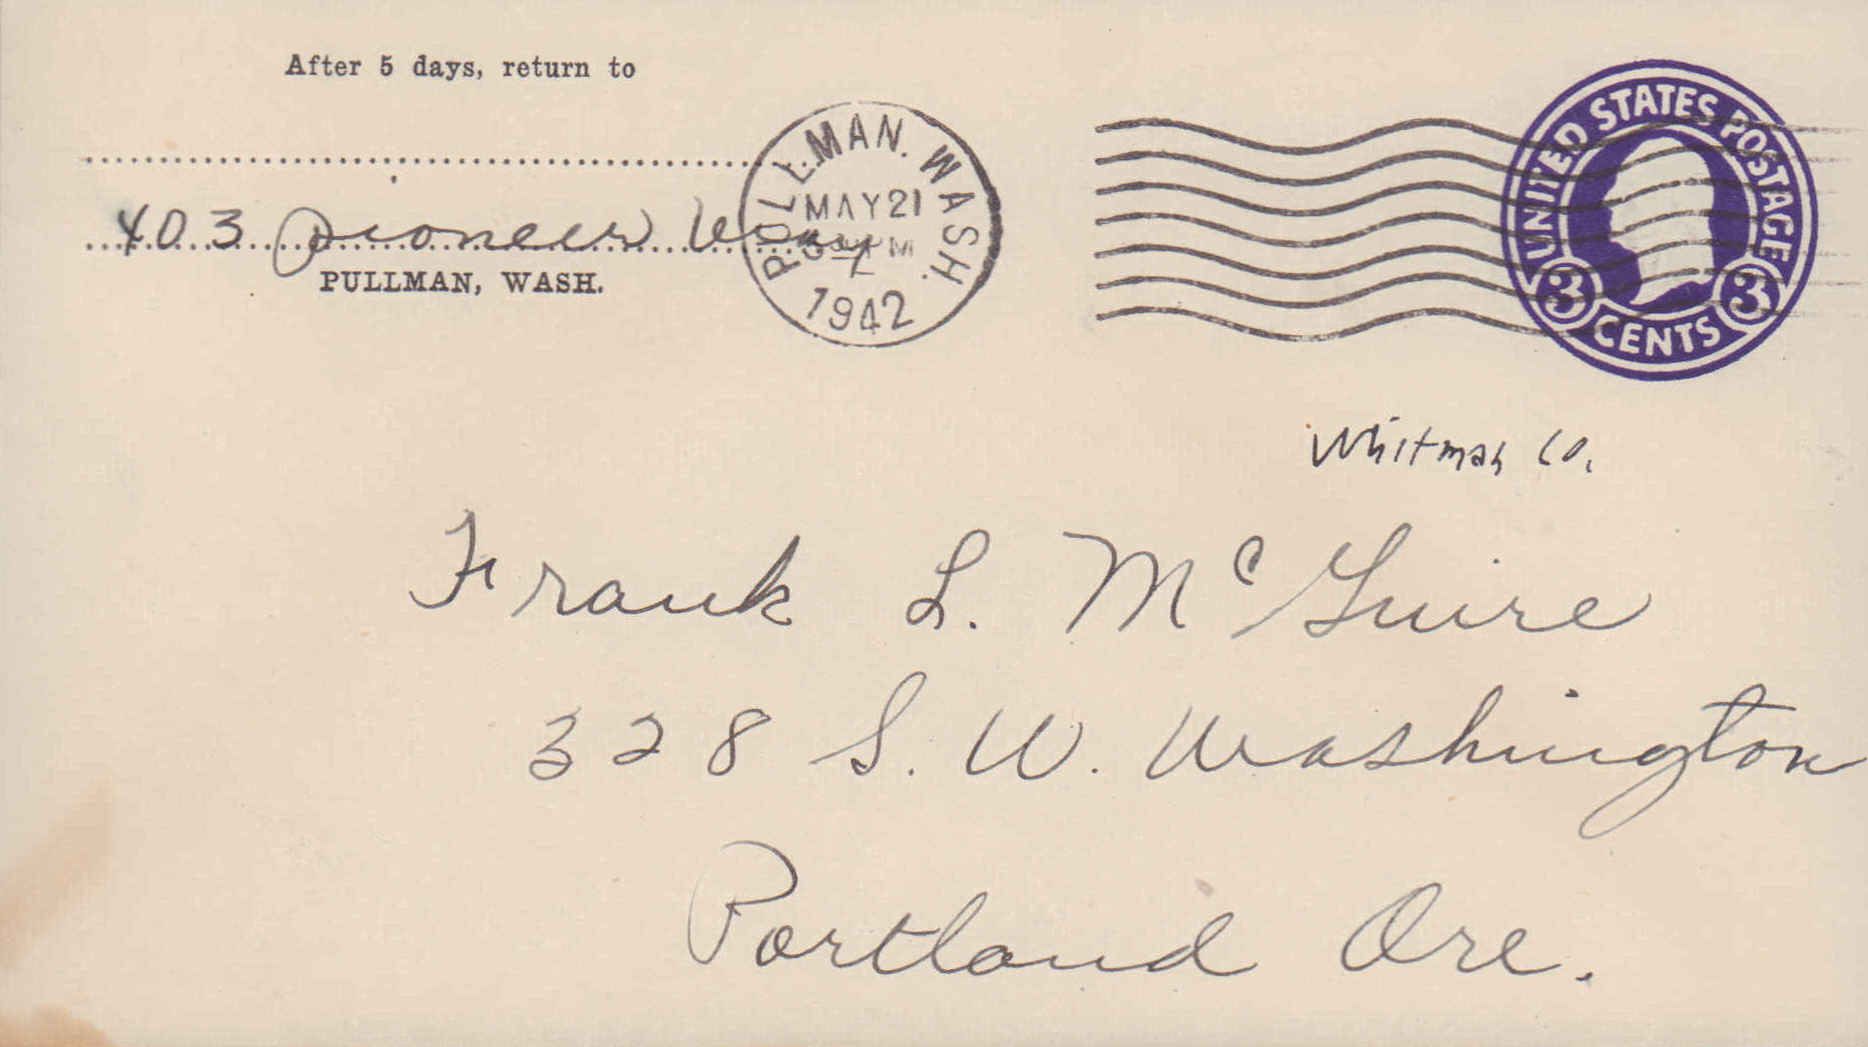 After 5 days, return to
403 Pioneer
PULLMAN, WASH.
PULLMAN. WASH.
MAY 21
PM
1942
UNITED STATES POSTAGE
3 CENTS 3
Whitman Co.
Frank L. McGuire
328 S. W. Washington
Portland Ore.